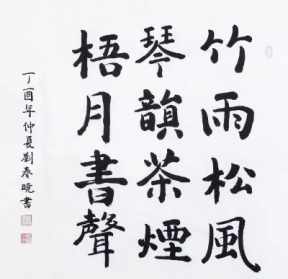 竹雨松風
琴韻茶煙
梧月書聲
丁酉年仲夏劉春曉書